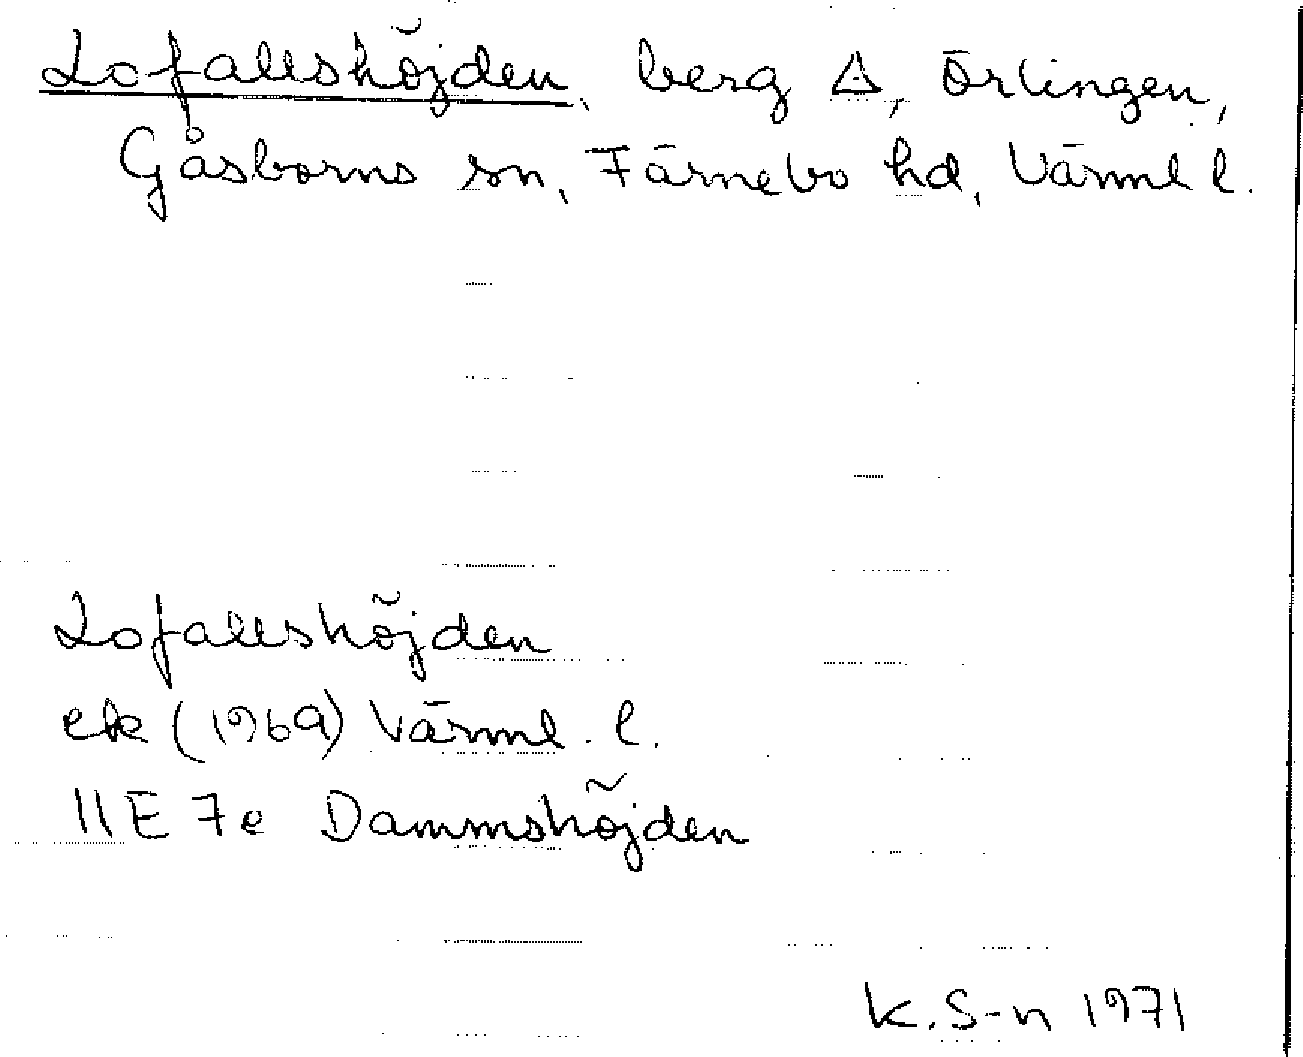 Lofallshöjden, berg △, Örlingen,
Gåsborns sn, Färnebo hd, Värml l.
Lofallshöjden
ek (1969) Värml. l.
11E 7e Dammshöjden
K. S-n 1971